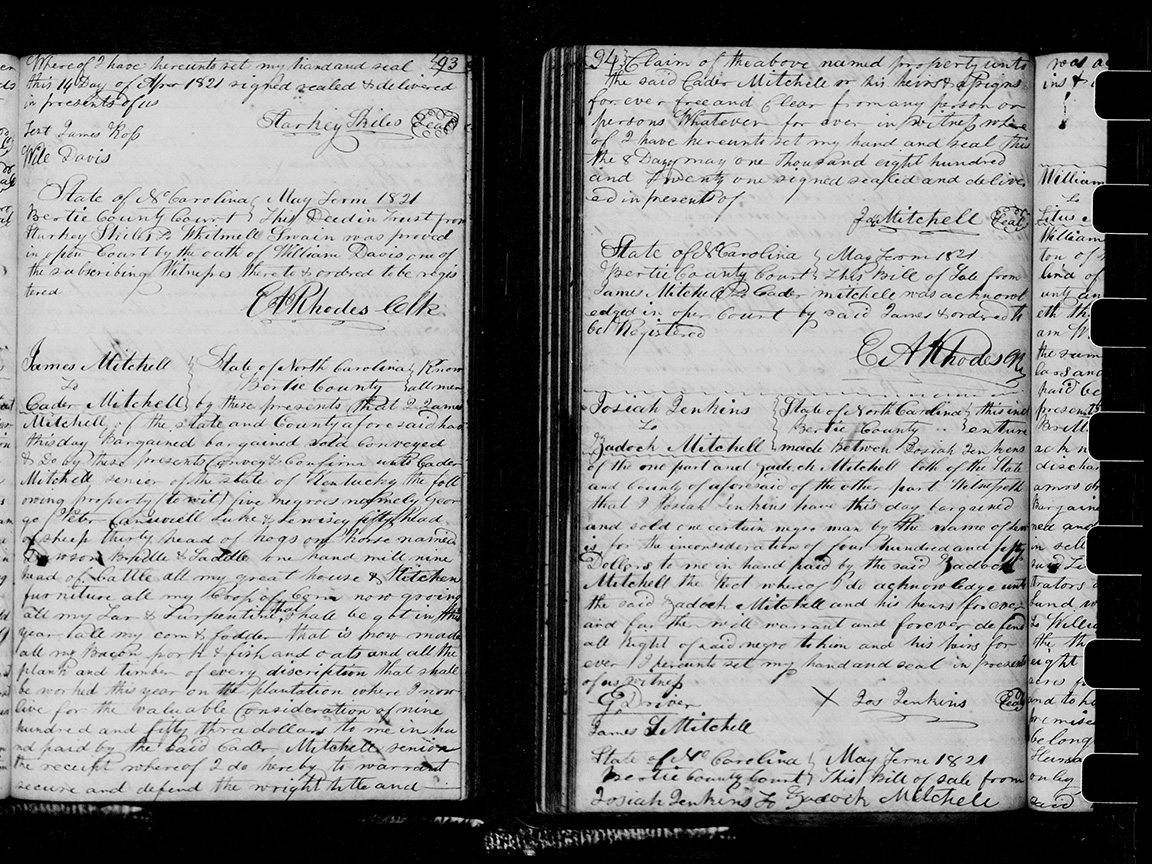 Whereof I have hereunto set my hand and seal 493
this 14 Day of Apr 1821 signed sealed & delivered
in presents of us
Starkey Skiles Seal
Test James Ross
Wile Davis
State of No Carolina } May Term 1821
Bertie County Court } This Deed in Trust from
Starkey Skiles to Whitmell Swain was proved
in open Court by the oath of William Davis one of
the subscribing Witnesses thereto & ordred to be regis
tered
E A Rhodes Clk
James Mitchell } State of North Carolina } Know
To } Bertie County } all men
Cader Mitchell } by these presents that I James
Mitchell of the state and County aforesaid hav
this day Bargained bargained Sold Conveyed
& do by these presents Convey & Confirm unto Cader
Mitchell senior of the state of Kentucky the foll
owing property (to wit) five negroes namely Geor
ge Peter Luke & fifty head
of sheep thirty head of hogs one horse named
Bridle & Saddle one hand mill nine
head of Cattle all my great house & Kitchen
furniture all my Crop of Corn now growing
all my Tar & Turpentine that shall be got in this
year all my corn & fodder that is now made
all my Bacon pork & fish and oats and all the
plank and timber of every discription that shall
be worked this year on the plantation where I now
live for the valuable Consideration of nine
hundred and fifty three dollars to me in ha
nd paid by the said Cader Mitchell senior
the receipt whereof I do hereby to warrant
secure and defend the wright title and
94 } Claim of the above named property unto
the said Cader Mitchell or his heirs & assigns
for ever free and Clear from any person or
persons Whatever for ever in witness where
of I have hereunto set my hand and seal this
the 8 Day may one thousand eight hundred
and twenty one signed sealed and deliver
ed in presents of
Jas Mitchell Seal
State of No Carolina } May Term 1821
Bertie County Court } This Bill of Sale from
James Mitchell To Cader mitchell was acknowl
edged in open Court by said James & ordred to
be Registered
E A Rhodes Clk
Josiah Jenkins } State of North Carolina } this ind
To } Bertie County } enture
Zadock Mitchell } made between Josiah Jenkens
of the one part and Zadock Mitchell both of the State
and County of aforesaid of the other part Witnesseth
that I Josiah Jenkins have this day bargained
and sold one certain negro man by the name of
for the inconsideration of four hundred and fifty
Dollars to me in hand paid by the said Zadock
Mitchell the Rect whereof I do acknowledge unto
the said Zadock Mitchell and his heurs for ever
and further will warrant and forever defend
all Right of said negro to him and his hirs for
ever I hereunto set my hand and seal in presents
of us witness
G Driver X Jos Jenkins Seal
James S Mitchell
State of No Carolina } May Term 1821
Bertie County Court } This bill of sale from
Josiah Jenkins To Zadock Mitchell
William